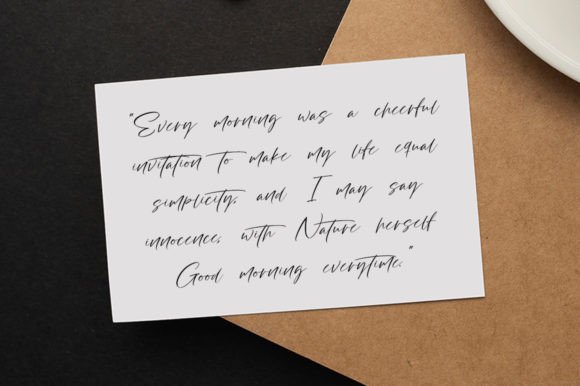 "Every morning was a cheerful
invitation to make my life equal
simplicity, and I may say
innocence, with Nature herself
Good morning everytime."